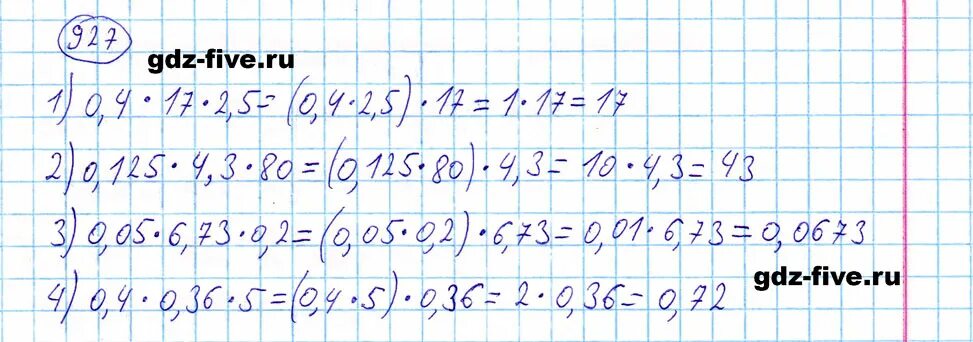 927
gdz-five.ru
1) 0,4 · 17 · 2,5 = (0,4 · 2,5) · 17 = 1 · 17 = 17
2) 0,125 · 4,3 · 80 = (0,125 · 80) · 4,3 = 10 · 4,3 = 43
3) 0,05 · 6,73 · 0,2 = (0,05 · 0,2) · 6,73 = 0,01 · 6,73 = 0,0673
gdz-five.ru
4) 0,4 · 0,36 · 5 = (0,4 · 5) · 0,36 = 2 · 0,36 = 0,72